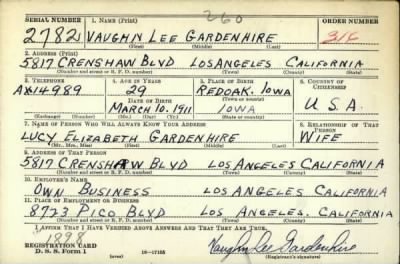 SERIAL NUMBER 1. NAME (Print) 260 ORDER NUMBER
2782 VAUGHN LEE GARDENHIRE 315
(First) (Middle) (Last)
2. ADDRESS (Print)
5817 CRENSHAW BLVD LOSANGELES CALIFORNIA
(Number and street or R. F. D. number) (Town) (County) (State)
3. TELEPHONE 4. AGE IN YEARS 5. PLACE OF BIRTH 6. COUNTRY OF CITIZENSHIP
AX14989 29 REDOAK. IOWA
DATE OF BIRTH (Town or county)
MARCH 10. 1911 IOWA U S A
(Exchange) (Number) (Mo.) (Day) (Yr.) (State or country)
7. NAME OF PERSON WHO WILL ALWAYS KNOW YOUR ADDRESS 8. RELATIONSHIP OF THAT PERSON
LUCY ELIZABETH GARDENHIRE WIFE
(Mr., Mrs., Miss) (First) (Middle) (Last)
9. ADDRESS OF THAT PERSON
5817 CRENSHAW BLVD LOS ANGELES CALIFORNIA
(Number and street or R. F. D. number) (Town) (County) (State)
10. EMPLOYER'S NAME
OWN BUSINESS LOS ANGELES CALIFORNIA
11. PLACE OF EMPLOYMENT OR BUSINESS
8723 PICO BLVD LOS ANGELES. CALIFORNIA
(Number and street or R. F. D. number) (Town) (County) (State)
I AFFIRM THAT I HAVE VERIFIED ABOVE ANSWERS AND THAT THEY ARE TRUE.
REGISTRATION CARD
D. S. S. Form 1 (over) 16-17105 Vaughn Lee Gardenhire
(Registrant's signature)